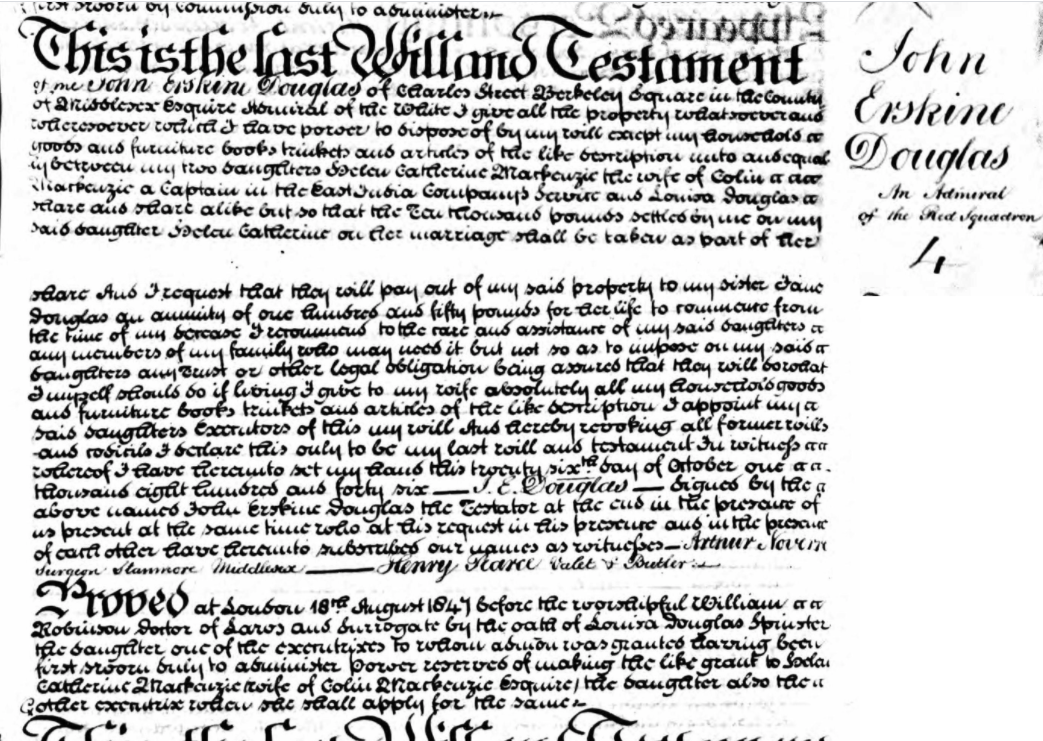 first sworn by commission duly to administer
This is the last Will and Testament
of me John Erskine Douglas of Charles Street Berkeley Square in the County
of Middlesex Esquire Admiral of the White I give all the property whatsoever and
wheresoever which I have power to dispose of by my will except my household
goods and furniture books trinkets and articles of the like description unto and equal
ly between my two daughters Helen Catherine Mackenzie the wife of Colin
Mackenzie a Captain in the East India Companys Service and Louisa Douglas
share and share alike but so that the Ten thousand pounds settled by me on my
said daughter Helen Catherine on her marriage shall be taken as part of her
share And I request that they will pay out of my said property to my sister Jane
Douglas an annuity of one hundred and fifty pounds for her life to commence from
the time of my decease I recommend to the care and assistance of my said daughters
any members of my family who may need it but not so as to impose on my said
daughters any Trust or other legal obligation being assured that they will do what
I myself should do if living I give to my wife absolutely all my household goods
and furniture books trinkets and articles of the like description I appoint my
said daughters Executors of this my will And hereby revoking all former wills
and codicils I declare this only to be my last will and testament In witness
whereof I have hereunto set my hand this twenty sixth day of October one
thousand eight hundred and forty six — J. E. Douglas — Signed by the
above named John Erskine Douglas the Testator at the end in the presence of
us present at the same time who at his request in his presence and in the presence
of each other have hereunto subscribed our names as witnesses — Arthur
Surgeon Stanmore Middlesex — Henry Pearce Valet & Butler
Proved at London 18th August 1847 before the worshipful William
Robinson Doctor of Laws and Surrogate by the oath of Louisa Douglas Spinster
the daughter one of the executrixes to whom admon was granted having been
first sworn duly to administer Power reserved of making the like grant to Helen
Catherine Mackenzie (wife of Colin Mackenzie Esquire) the daughter also the
other executrix when she shall apply for the same
This is the last Will and Testament
John
Erskine
Douglas
An Admiral
of the Red Squadron
4